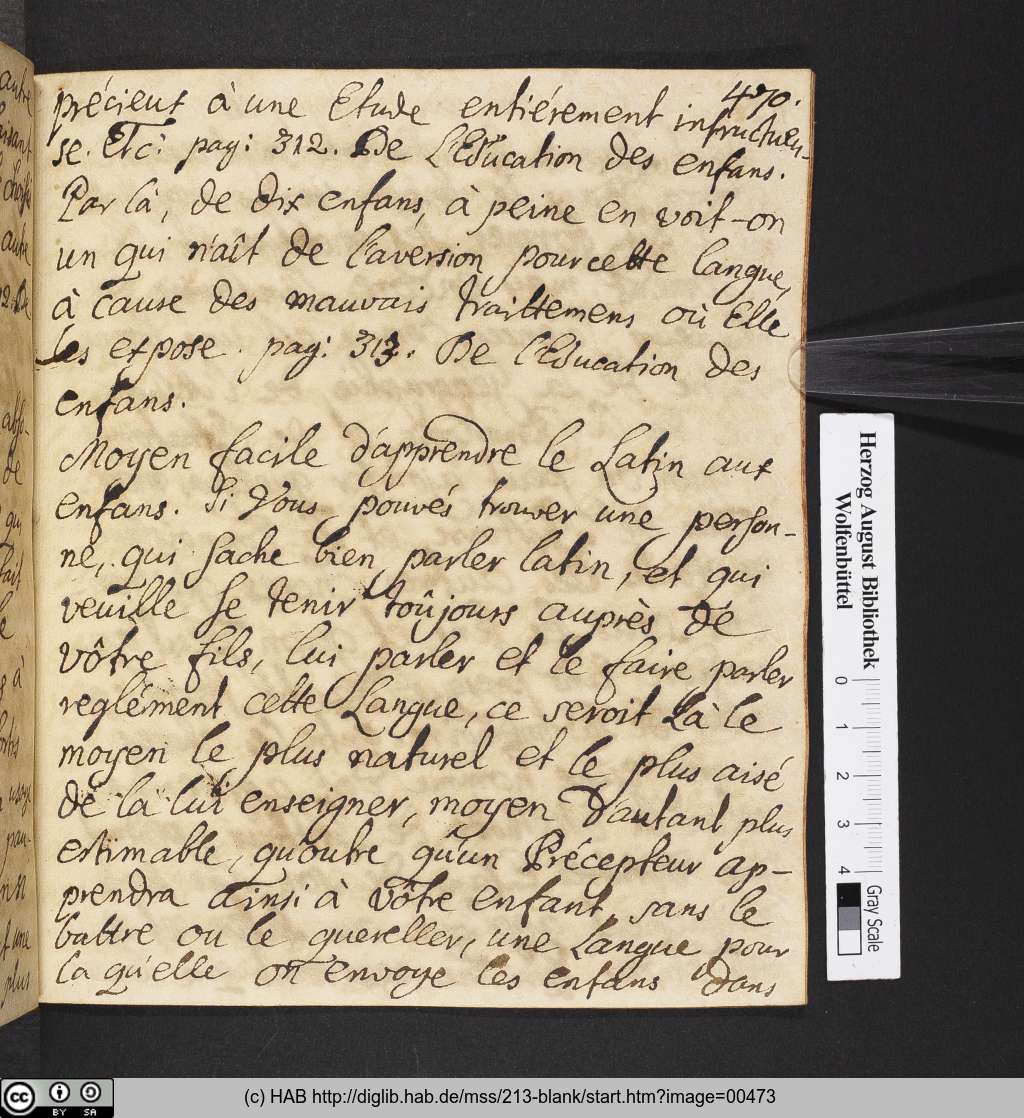 470.
précieux à une Etude entiérement infructueu-
se. Etc: pag: 312. De l'Education des enfans.
Par là, de dix enfans, à peine en voit-on
un qui n'aît de l'aversion pour cette langue,
à cause des mauvais traittemens où Elle
les expose. pag: 313. De l'Education des
enfans.
Moyen facile d'apprendre le Latin aux
enfans. Si Vous pouvés trouver une person-
ne, qui sache bien parler latin, et qui
veuille se tenir toûjours auprès de
vôtre fils, lui parler et le faire parler
reglément cette Langue, ce seroit Là le
moyen le plus naturel et le plus aisé
de la lui enseigner, moyen d'autant plus
estimable, qu'outre qu'un Précepteur ap-
prendra ainsi à vôtre enfant, sans le
battre ou le quereller, une Langue pour
la qu'elle on envoye les enfans dans
Herzog August Bibliothek
Wolfenbüttel
0 1 2 3 4
Gray Scale
cc BY SA
(c) HAB http://diglib.hab.de/mss/213-blank/start.htm?image=00473